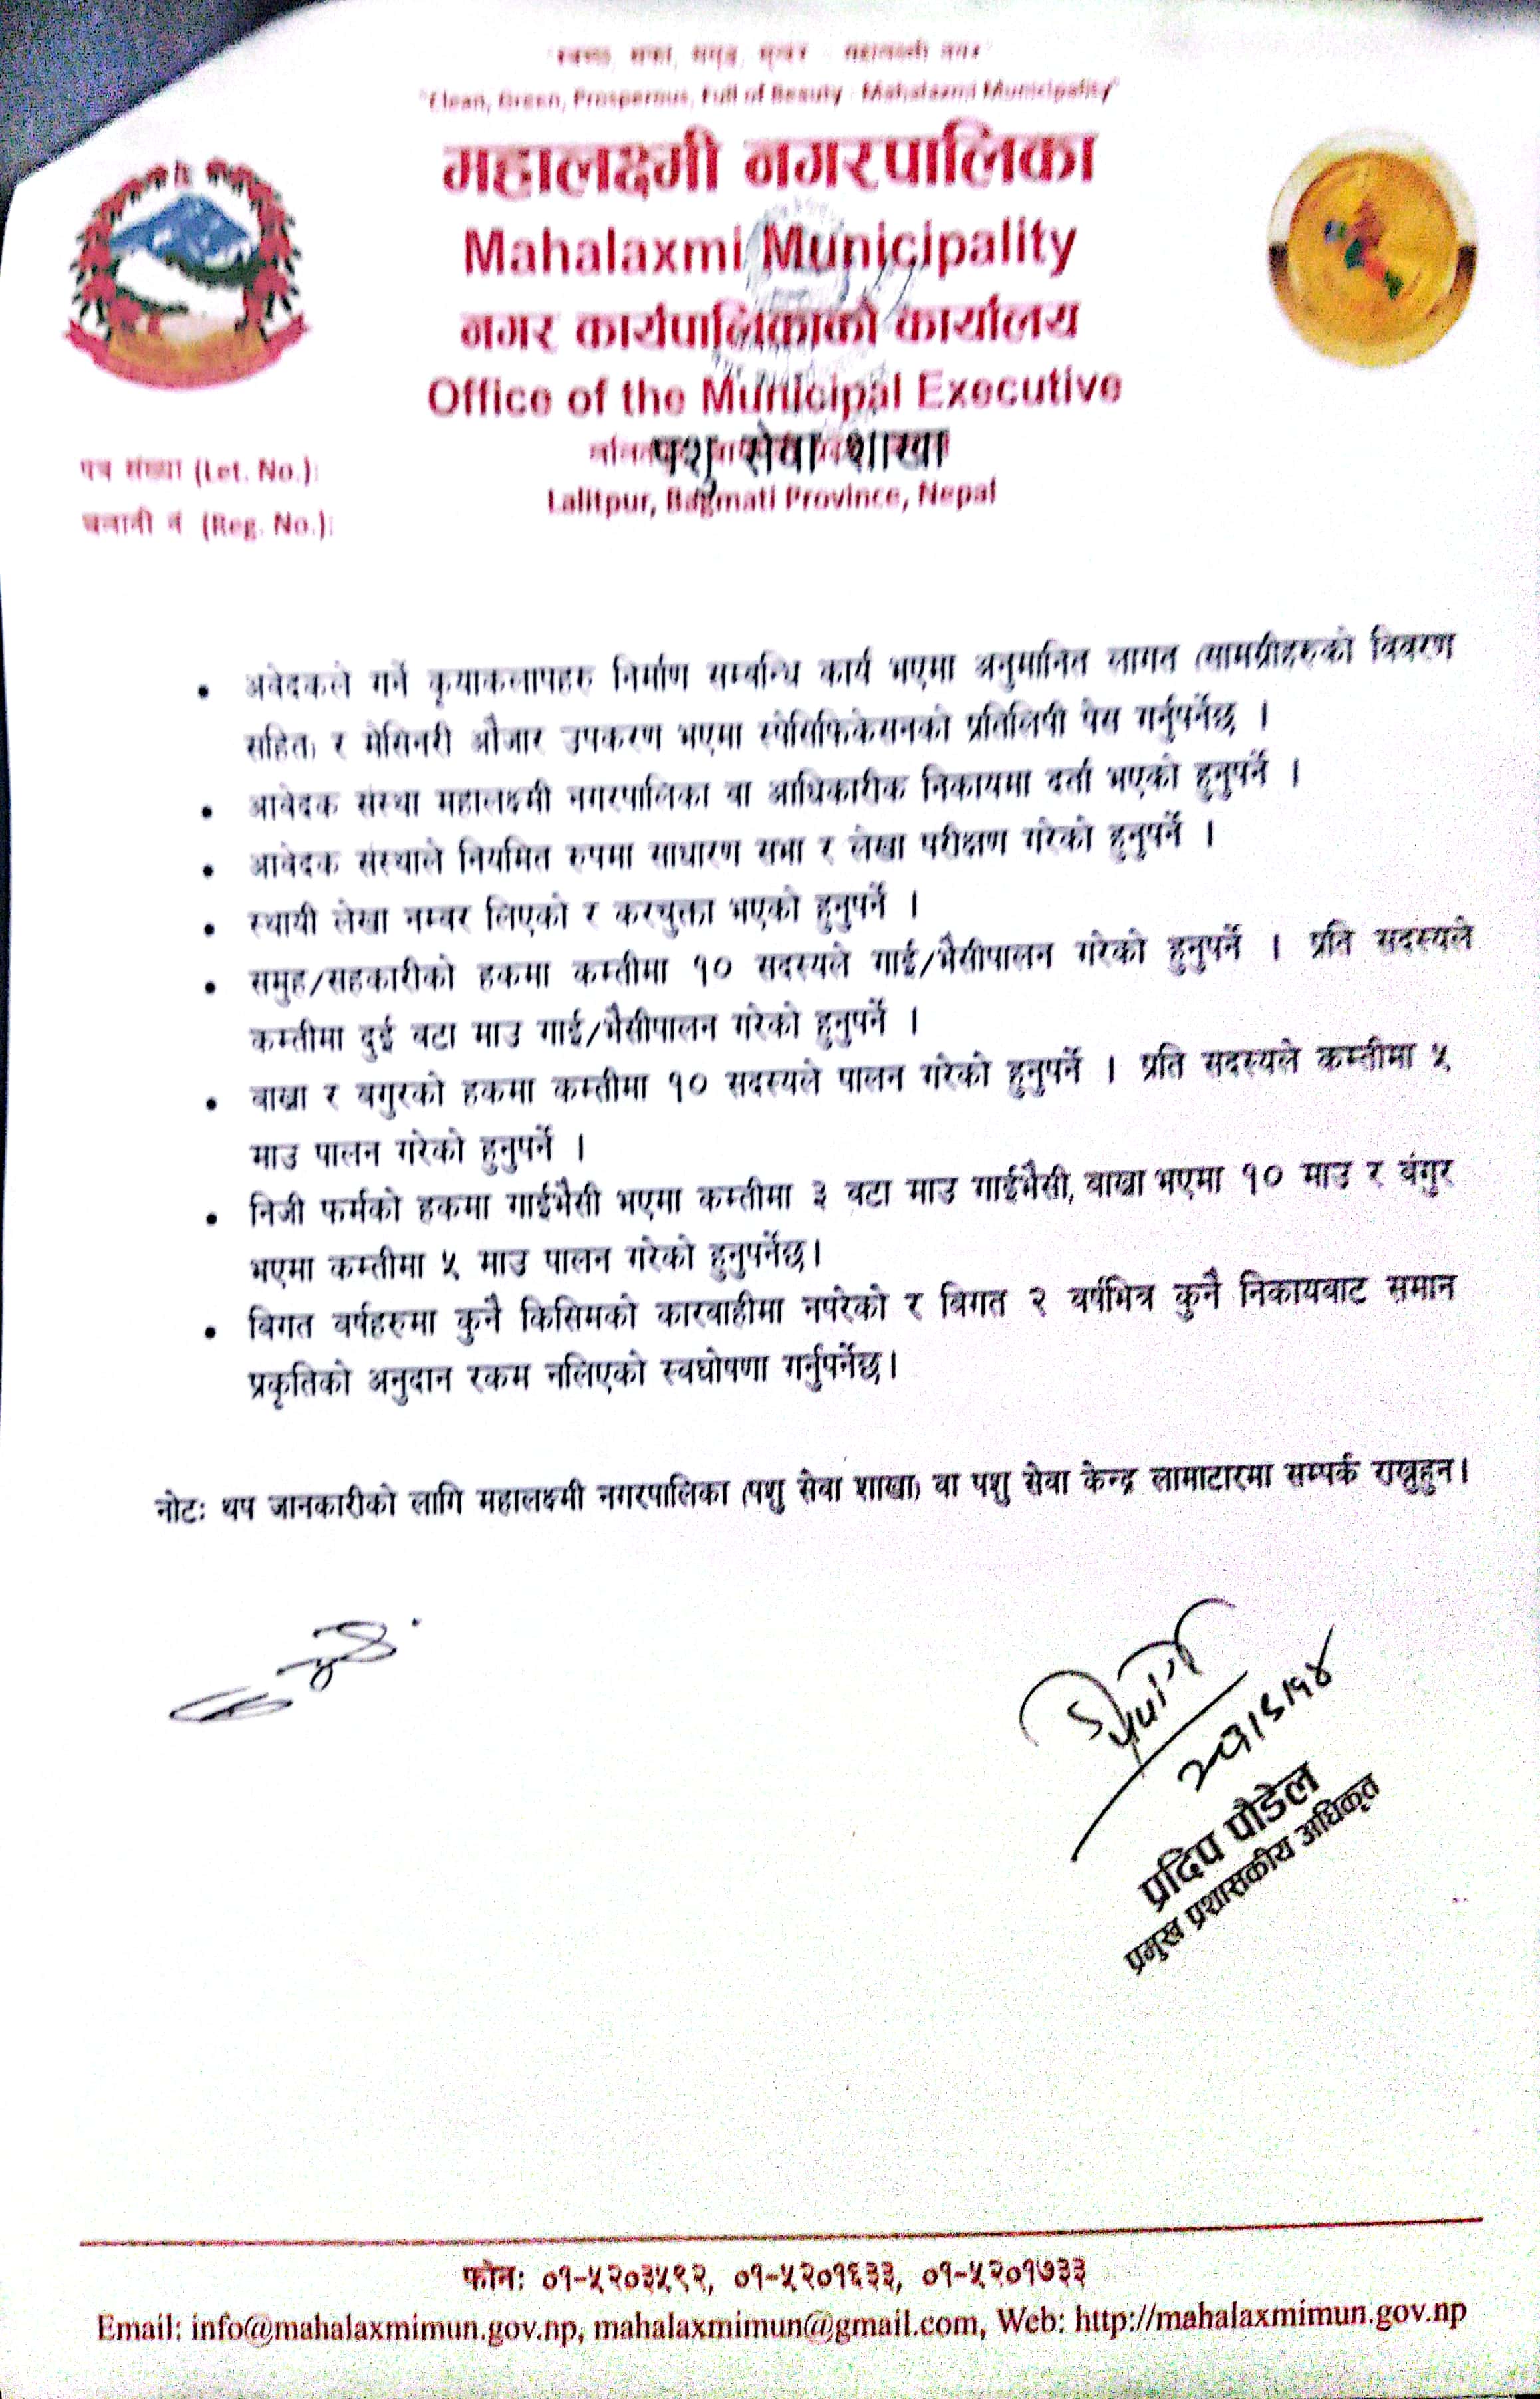 "Clean, Green, Prosperous, Full of Beauty - Mahalaxmi Municipality"
महालक्ष्मी नगरपालिका
Mahalaxmi Municipality
नगर कार्यपालिकाको कार्यालय
Office of the Municipal Executive
पशु सेवा शाखा
पत्र संख्या (Let. No.):
Lalitpur, Bagmati Province, Nepal
चलानी नं (Reg. No.):
• अवेदकले गर्ने कृयाकलापहरु निर्माण सम्बन्धि कार्य भएमा अनुमानित लागत (सामग्रीहरुको विवरण
सहित) र मेसिनरी औजार उपकरण भएमा स्पेसिफिकेसनको प्रतिलिपी पेस गर्नुपर्नेछ ।
• आवेदक संस्था महालक्ष्मी नगरपालिका वा आधिकारीक निकायमा दर्ता भएको हुनुपर्ने ।
• आवेदक संस्थाले नियमित रुपमा साधारण सभा र लेखा परीक्षण गरेको हुनुपर्ने ।
• स्थायी लेखा नम्बर लिएको र करचुक्ता भएको हुनुपर्ने ।
• समुह/सहकारीको हकमा कम्तीमा १० सदस्यले गाई/भैसीपालन गरेको हुनुपर्ने । प्रति सदस्यले
कम्तीमा दुई वटा माउ गाई/भैसीपालन गरेको हुनुपर्ने ।
• बाख्रा र बगुरको हकमा कम्तीमा १० सदस्यले पालन गरेको हुनुपर्ने । प्रति सदस्यले कम्तीमा ५
माउ पालन गरेको हुनुपर्ने ।
• निजी फर्मको हकमा गाईभैसी भएमा कम्तीमा ३ वटा माउ गाईभैसी, बाख्रा भएमा १० माउ र बंगुर
भएमा कम्तीमा ५ माउ पालन गरेको हुनुपर्नेछ।
• बिगत बर्षहरुमा कुनै किसिमको कारबाहीमा नपरेको र बिगत २ बर्षभित्र कुनै निकायबाट समान
प्रकृतिको अनुदान रकम नलिएको स्वघोषणा गर्नुपर्नेछ।
नोटः थप जानकारीको लागि महालक्ष्मी नगरपालिका (पशु सेवा शाखा) वा पशु सेवा केन्द्र लामाटारमा सम्पर्क राख्नुहुन।
प्रदिप पौडेल
प्रमुख प्रशासकीय अधिकृत
फोनः ०१-५२०३५९२, ०१-५२०१६३३, ०१-५२०१७३३
Email: info@mahalaxmimun.gov.np, mahalaxmimun@gmail.com, Web: http://mahalaxmimun.gov.np